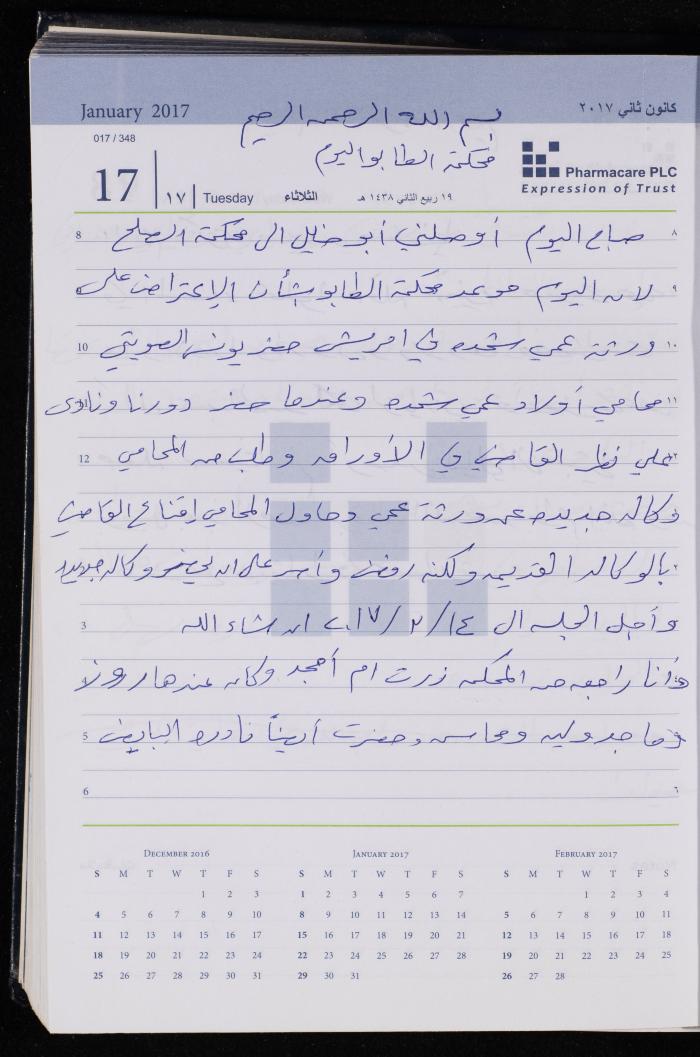 January 2017
كانون ثاني ٢٠١٧
بسم الله الرحمن الرحيم
017 / 348
محكمة الطابو اليوم
Pharmacare PLC
Expression of Trust
17 | ١٧ | Tuesday الثلاثاء ١٩ ربيع الثاني ١٤٣٨ هـ
8 صباح اليوم أوصلني أبو خليل الى محكمة الصلح ٨
9 لان اليوم موعد محكمة الطابو بشأن الإعتراض على ٩
10 ورثة عمي شحده في امريش حضر يونس ١٠
11 محامي أولاد عمي شحده وعندما حضر دورنا ونادى ١١
12 علي نظر القاضي في الأوراق وطلب من المحامي
وكاله جديده عن ورثة عمي وحاول المحامي إقناع القاضي
بالوكاله القديمه ولكنه رفض وأصر على ان وكاله جديده
3 وأجل الجلسه ال ١٤/ ٢/ ٢٠١٧ ان شاء الله
وأنا راجعه من المحكمه زرت ام أمجد وكان عندها
5 ومحاسن وحضرت أيضاً نادره
6 ٦
DECEMBER 2016
S M T W T F S
1 2 3
4 5 6 7 8 9 10
11 12 13 14 15 16 17
18 19 20 21 22 23 24
25 26 27 28 29 30 31
JANUARY 2017
S M T W T F S
1 2 3 4 5 6 7
8 9 10 11 12 13 14
15 16 17 18 19 20 21
22 23 24 25 26 27 28
29 30 31
FEBRUARY 2017
S M T W T F S
1 2 3 4
5 6 7 8 9 10 11
12 13 14 15 16 17 18
19 20 21 22 23 24 25
26 27 28